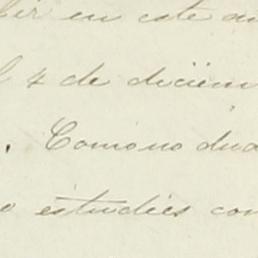 bir en este
4 de diciem
. Como no dud
o estudies con